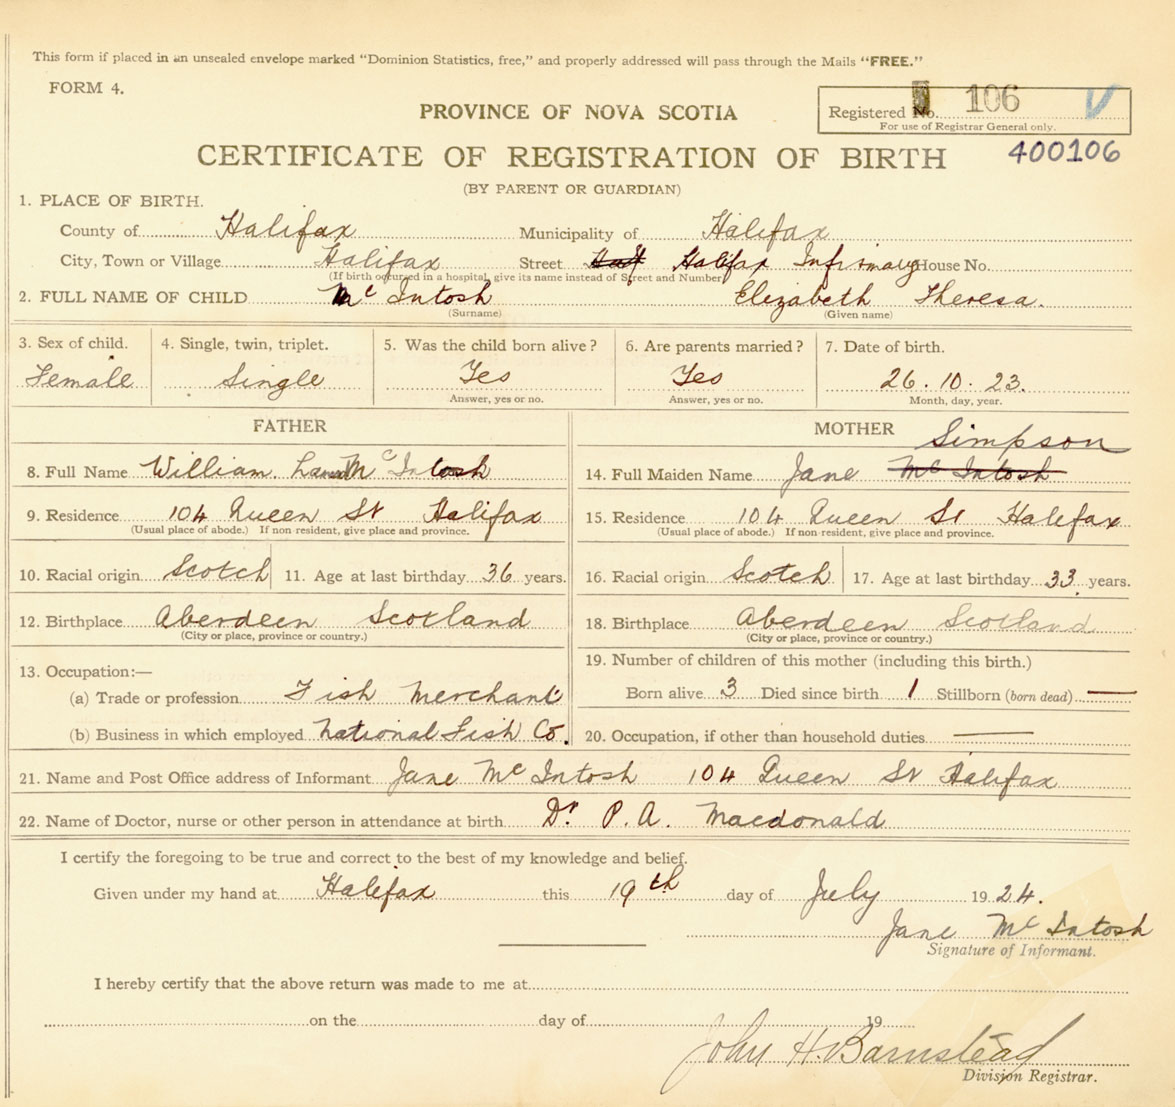 This form if placed in an unsealed envelope marked "Dominion Statistics, free," and properly addressed will pass through the Mails "FREE."
FORM 4.
PROVINCE OF NOVA SCOTIA
Registered No. 106 V
For use of Registrar General only.
CERTIFICATE OF REGISTRATION OF BIRTH 400106
(BY PARENT OR GUARDIAN)
1. PLACE OF BIRTH.
County of Halifax Municipality of Halifax
City, Town or Village Halifax Street Halifax Infirmary House No.
(If birth occurred in a hospital, give its name instead of Street and Number)
2. FULL NAME OF CHILD Mc Intosh Elizabeth Theresa.
(Surname) (Given name)
3. Sex of child. 4. Single, twin, triplet. 5. Was the child born alive? 6. Are parents married? 7. Date of birth.
Female Single Yes Yes 26.10.23.
Answer, yes or no. Answer, yes or no. Month, day, year.
FATHER MOTHER
Simpson
8. Full Name William. Mc Intosh 14. Full Maiden Name Jane Mc Intosh
9. Residence 104 Queen St Halifax 15. Residence 104 Queen St Halifax
(Usual place of abode.) If non-resident, give place and province. (Usual place of abode.) If non-resident, give place and province.
10. Racial origin Scotch 11. Age at last birthday 36 years. 16. Racial origin Scotch 17. Age at last birthday 33 years.
12. Birthplace Aberdeen Scotland 18. Birthplace Aberdeen Scotland
(City or place, province or country.) (City or place, province or country.)
13. Occupation:— 19. Number of children of this mother (including this birth.)
(a) Trade or profession Fish Merchant Born alive 3 Died since birth 1 Stillborn (born dead) —
(b) Business in which employed National Fish Co. 20. Occupation, if other than household duties —
21. Name and Post Office address of Informant Jane Mc Intosh 104 Queen St Halifax
22. Name of Doctor, nurse or other person in attendance at birth Dr P. A. Macdonald
I certify the foregoing to be true and correct to the best of my knowledge and belief.
Given under my hand at Halifax this 19th day of July 1924.
Jane Mc Intosh
Signature of Informant.
I hereby certify that the above return was made to me at
on the day of 19
John H. Barnstead
Division Registrar.